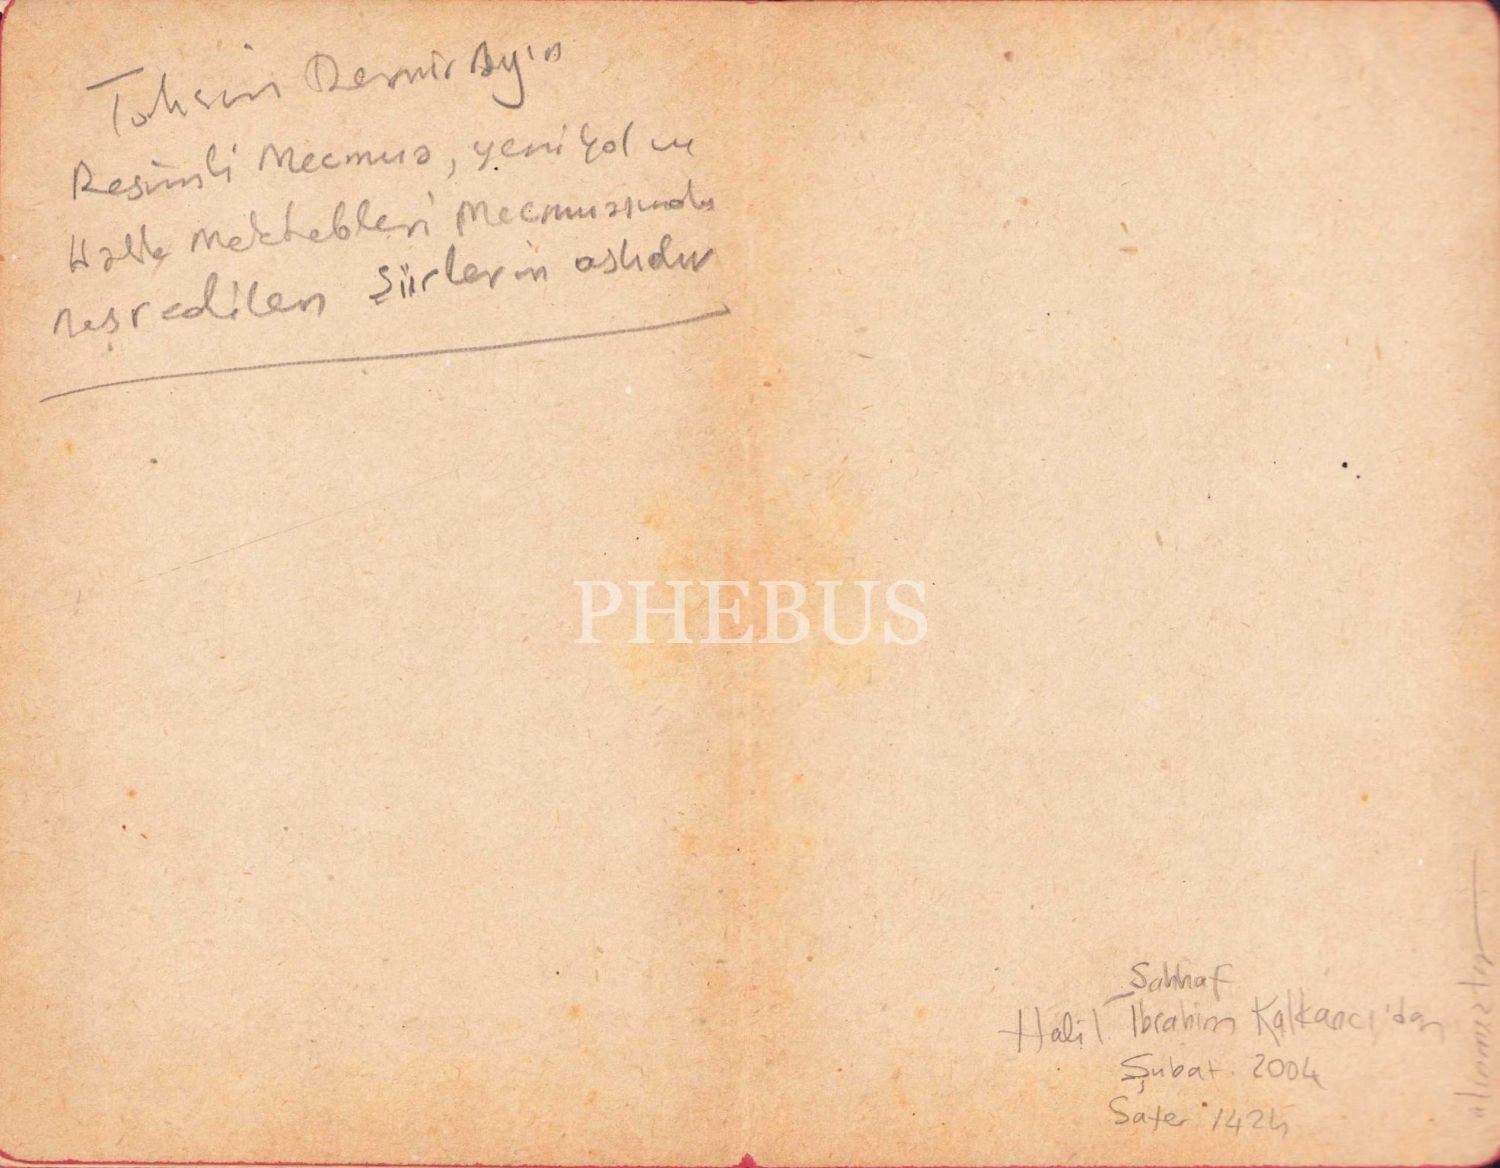 Tahsin Demir Ay'ın
Resimli Mecmua, yeni Yol ve
Halk Mektebleri Mecmuasında
neşredilen şiirlerin aslıdır
PHEBUS
Sahhaf
Halil İbrahim Kalkancı'dan
Şubat 2004
Safer 1424
alınmıştır